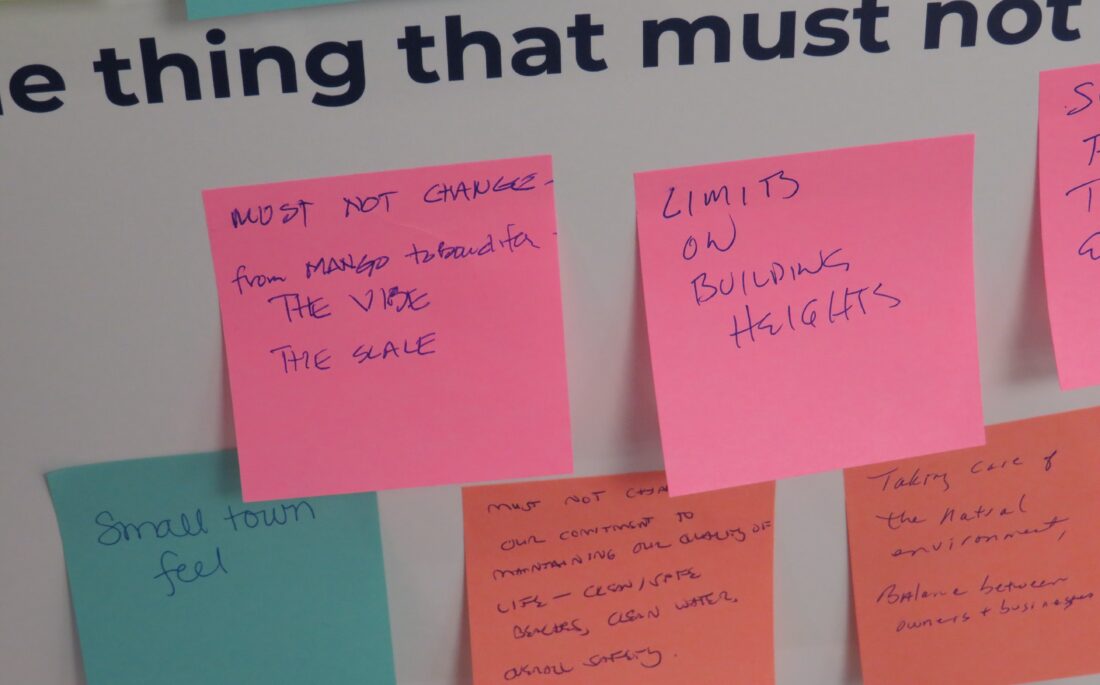 e thing that must not
MUST NOT CHANGE -
from MANGO to
THE VIBE
THE SCALE
LIMITS
ON
BUILDING
HEIGHTS
S
T
Small town
feel
MUST NOT CHAN
OUR COMITMENT TO
MAINTAINING OUR QUALITY OF
LIFE — CLEAN/SAFE
BEACHES, CLEAN WATER,
OVERALL SAFETY.
Taking care of
the natral
environment,
Balance between
owners + businesses